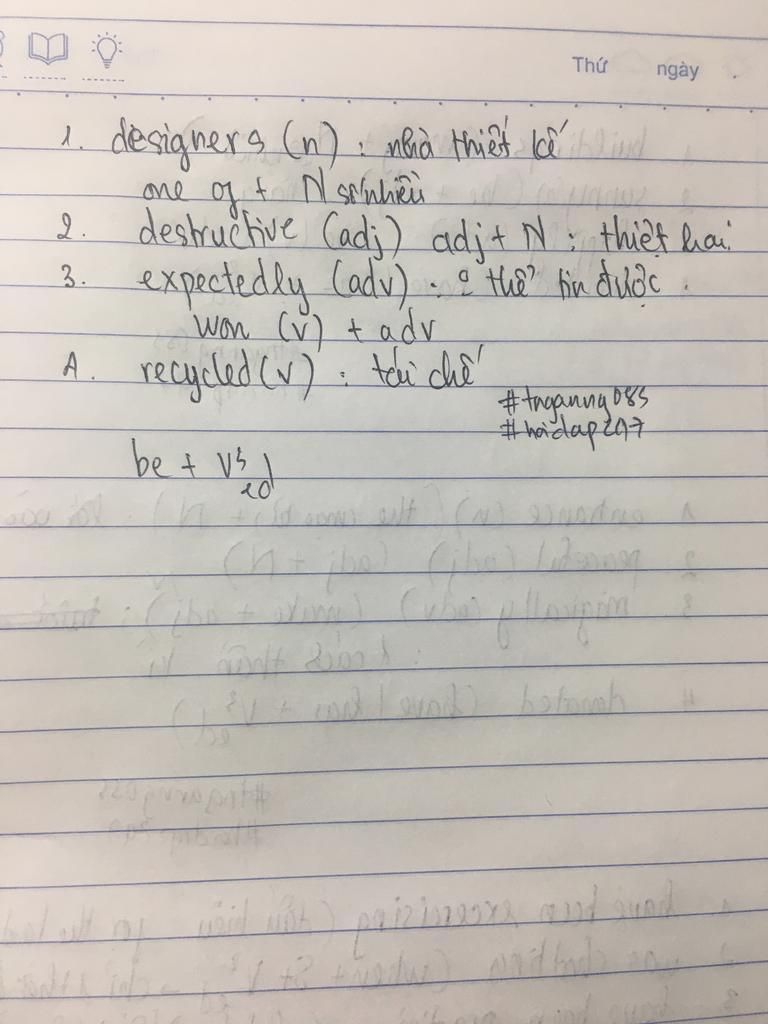 Thứ ngày
1. designers (n) : nhà thiết kế
one of + N số nhiều
2. destructive (adj) adj + N : thiệt hại
3. expectedly (adv) : thể tin được.
won (v) + adv
4. recycled (v) : tái chế
#tnganng085
#hoidap247
be + V3
ed